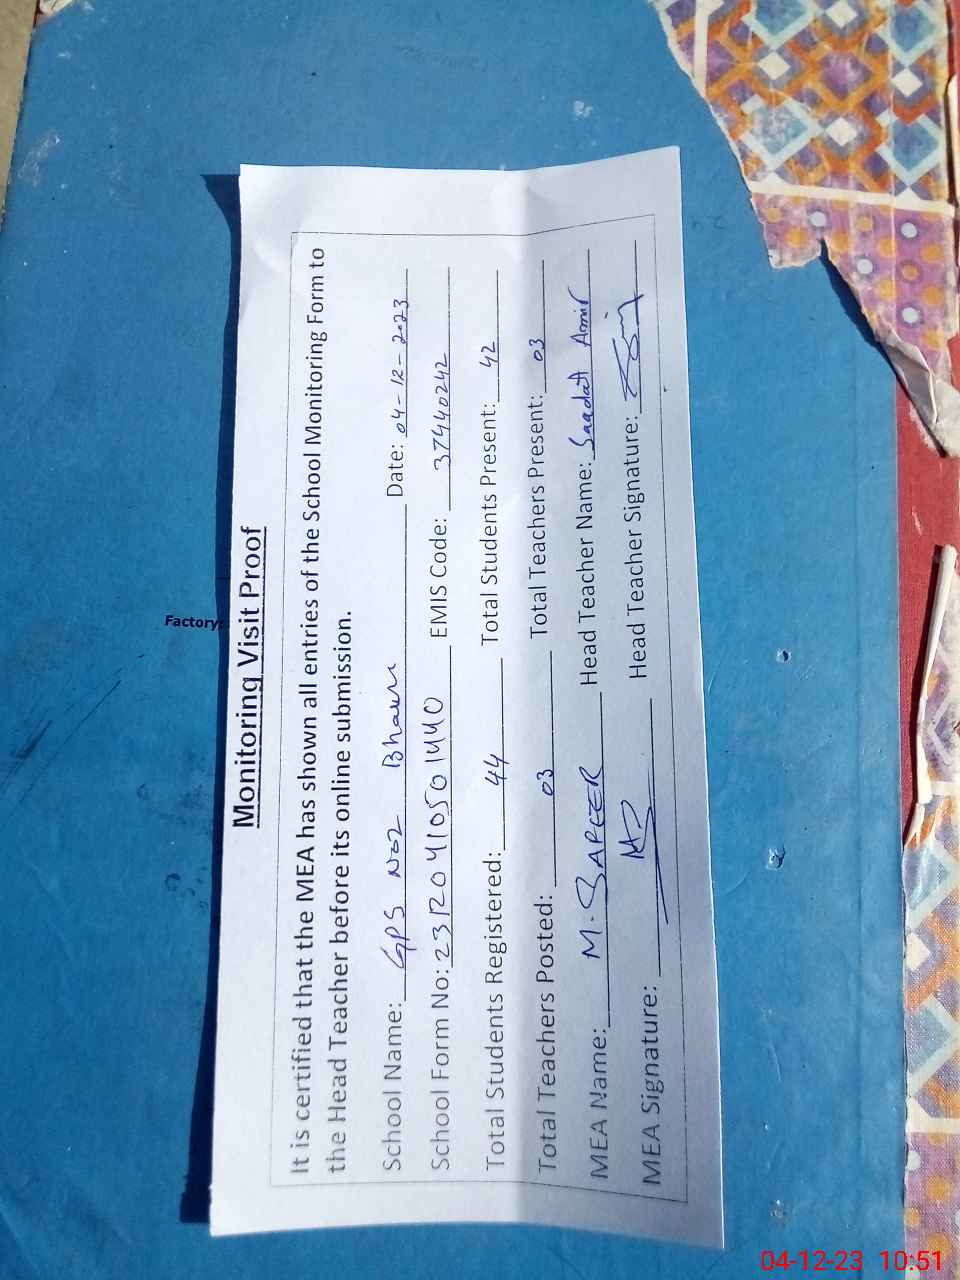 Monitoring Visit Proof
It is certified that the MEA has shown all entries of the School Monitoring Form to
the Head Teacher before its online submission.
School Name: GPS No2 Bhaun Date: 04-12-2023
School Form No: 23120410501440 EMIS Code: 37440242
Total Students Registered: 44 Total Students Present: 42
Total Teachers Posted: 03 Total Teachers Present: 03
MEA Name: M. SAFEER Head Teacher Name: Saadat Amir
MEA Signature: Head Teacher Signature:
Factory:
04-12-23 10:51